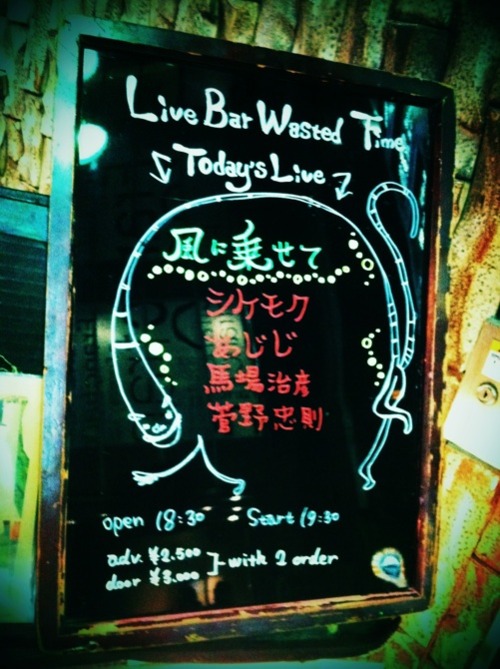 Live Bar Wasted Time
Today's Live
風に乗せて
シケモク
あじじ
馬場治彦
菅野忠則
open 18:30 Start 19:30
adv. ¥2.500
door ¥3.000
with 2 order